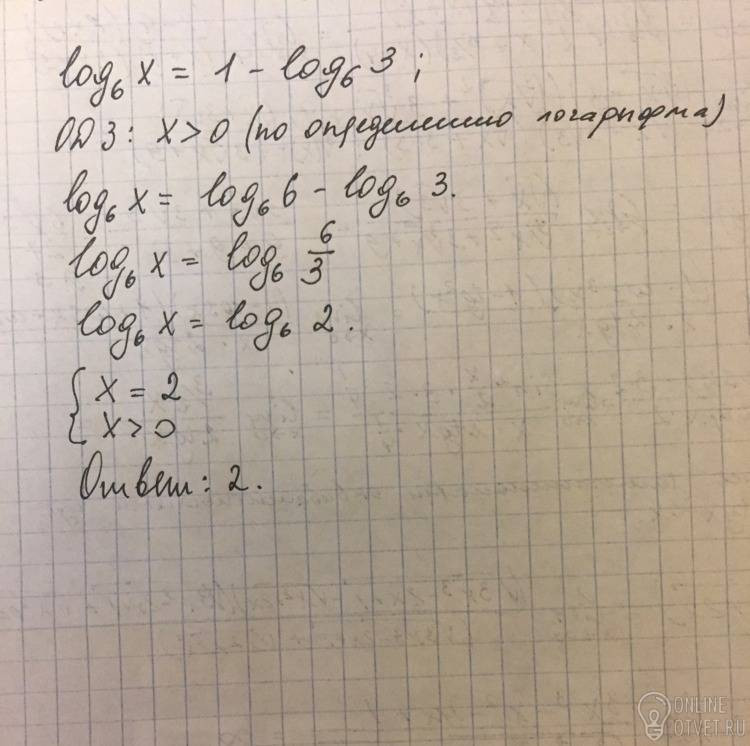 log₆ x = 1 - log₆ 3 ;
ОДЗ: x > 0 (по определению логарифма)
log₆ x = log₆ 6 - log₆ 3.
log₆ x = log₆ 6/3
log₆ x = log₆ 2.
{ x = 2
{ x > 0
Ответ: 2.
ONLINE
OTVET.RU